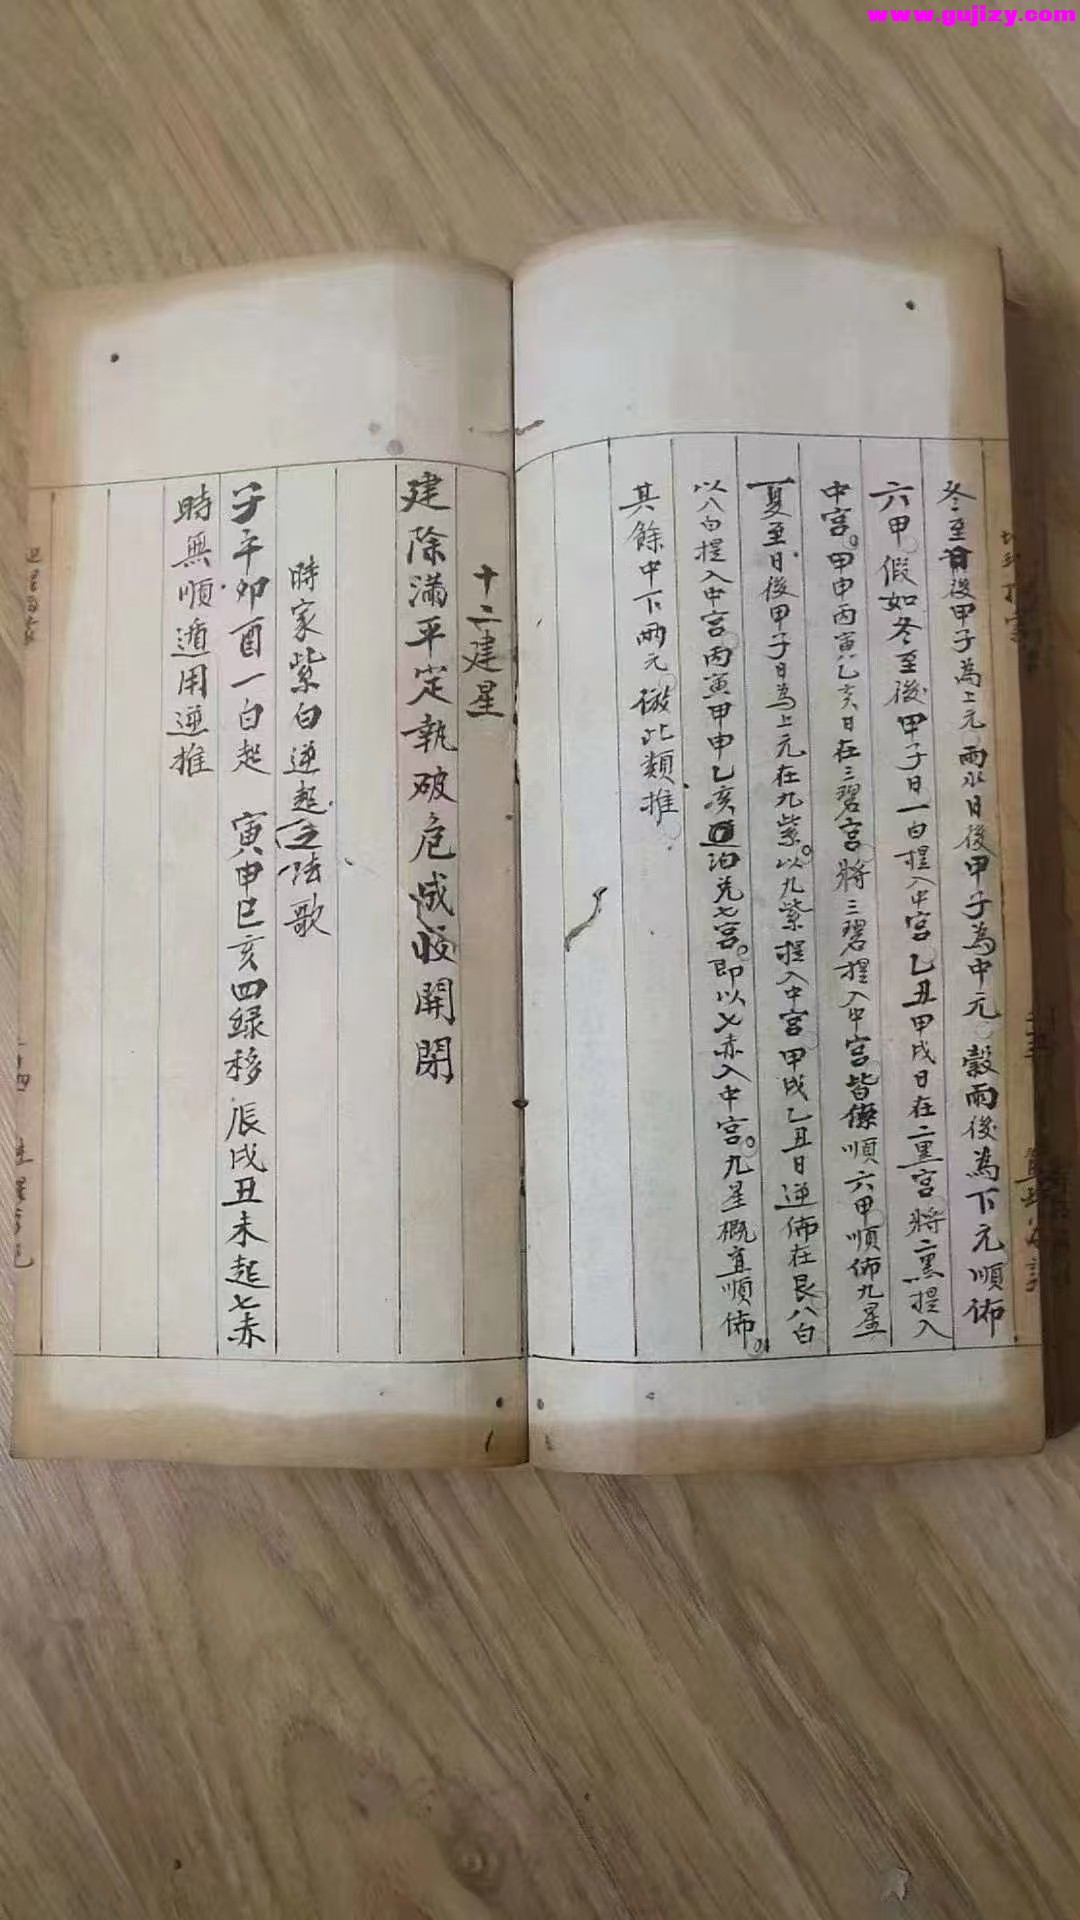 www.gujizy.com
冬至後甲子為上元雨水日後甲子為中元穀雨後為下元順佈
六甲假如冬至後甲子日一白提入中宮乙丑甲戌日在二黑宮將二黑提入
中宮甲申丙寅乙亥日在三碧宮將三碧提入中宮皆係順六甲順佈九星
夏至日後甲子日為上元在九紫以九紫提入中宮甲戌乙丑日逆佈在艮八白
以八白提入中宮丙寅甲申乙亥泊兌七宮即以七赤入中宮九星概直順佈
其餘中下兩元倣此類推
十二建星
建除滿平定執破危成收開閉
時家紫白逆起之法歌
子午卯酉一白起 寅申巳亥四綠移 辰戌丑未起七赤
時無順遁用逆推